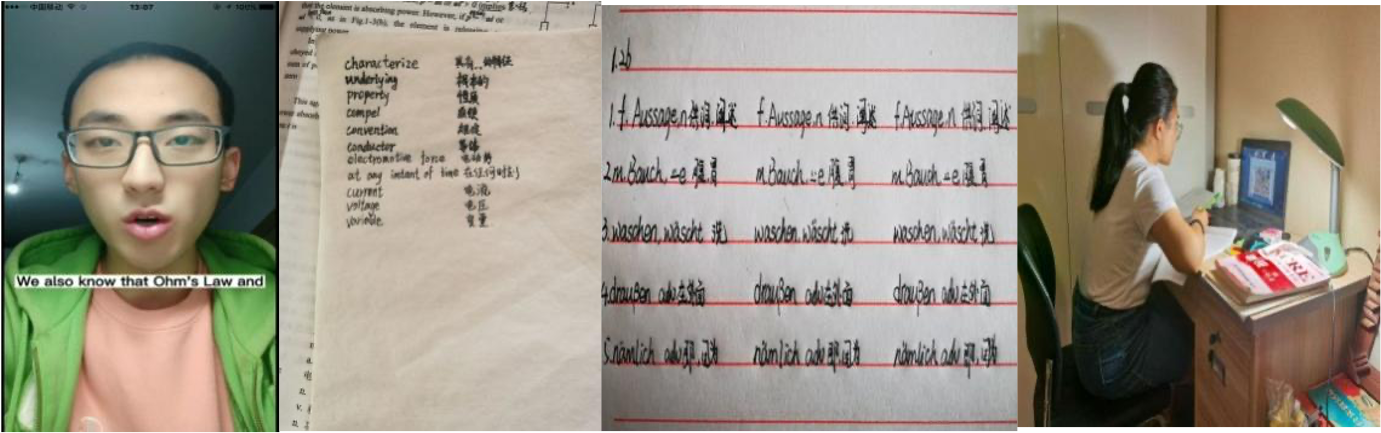 中国移动 13:07 100%
We also know that Ohm's Law and
that the element is absorbing power. However, if
as in Fig.1-3(b), the element is releasing
supplying power
characterize 具有...的特征
underlying 根本的
property 性质
compel
convention 规定
conductor 导体
electromotive force 电动势
at any instant of time 在任何时刻
current 电流
voltage 电压
variable 变量
1.2b
1.f.Aussage.n 供词.阐述 f.Aussage.n 供词.阐述 f.Aussage.n 供词.阐述
2.m.Bauch.=e 腹.胃 m.Bauch.=e 腹.胃 m.Bauch.=e 腹.胃
3.waschen,wäscht 洗 waschen,wäscht 洗 waschen,wäscht 洗
4.draußen adv.在外面 draußen adv.在外面 draußen adv.在外面
5.nämlich adv.即.因为 nämlich adv.即.因为 nämlich adv.即.因为